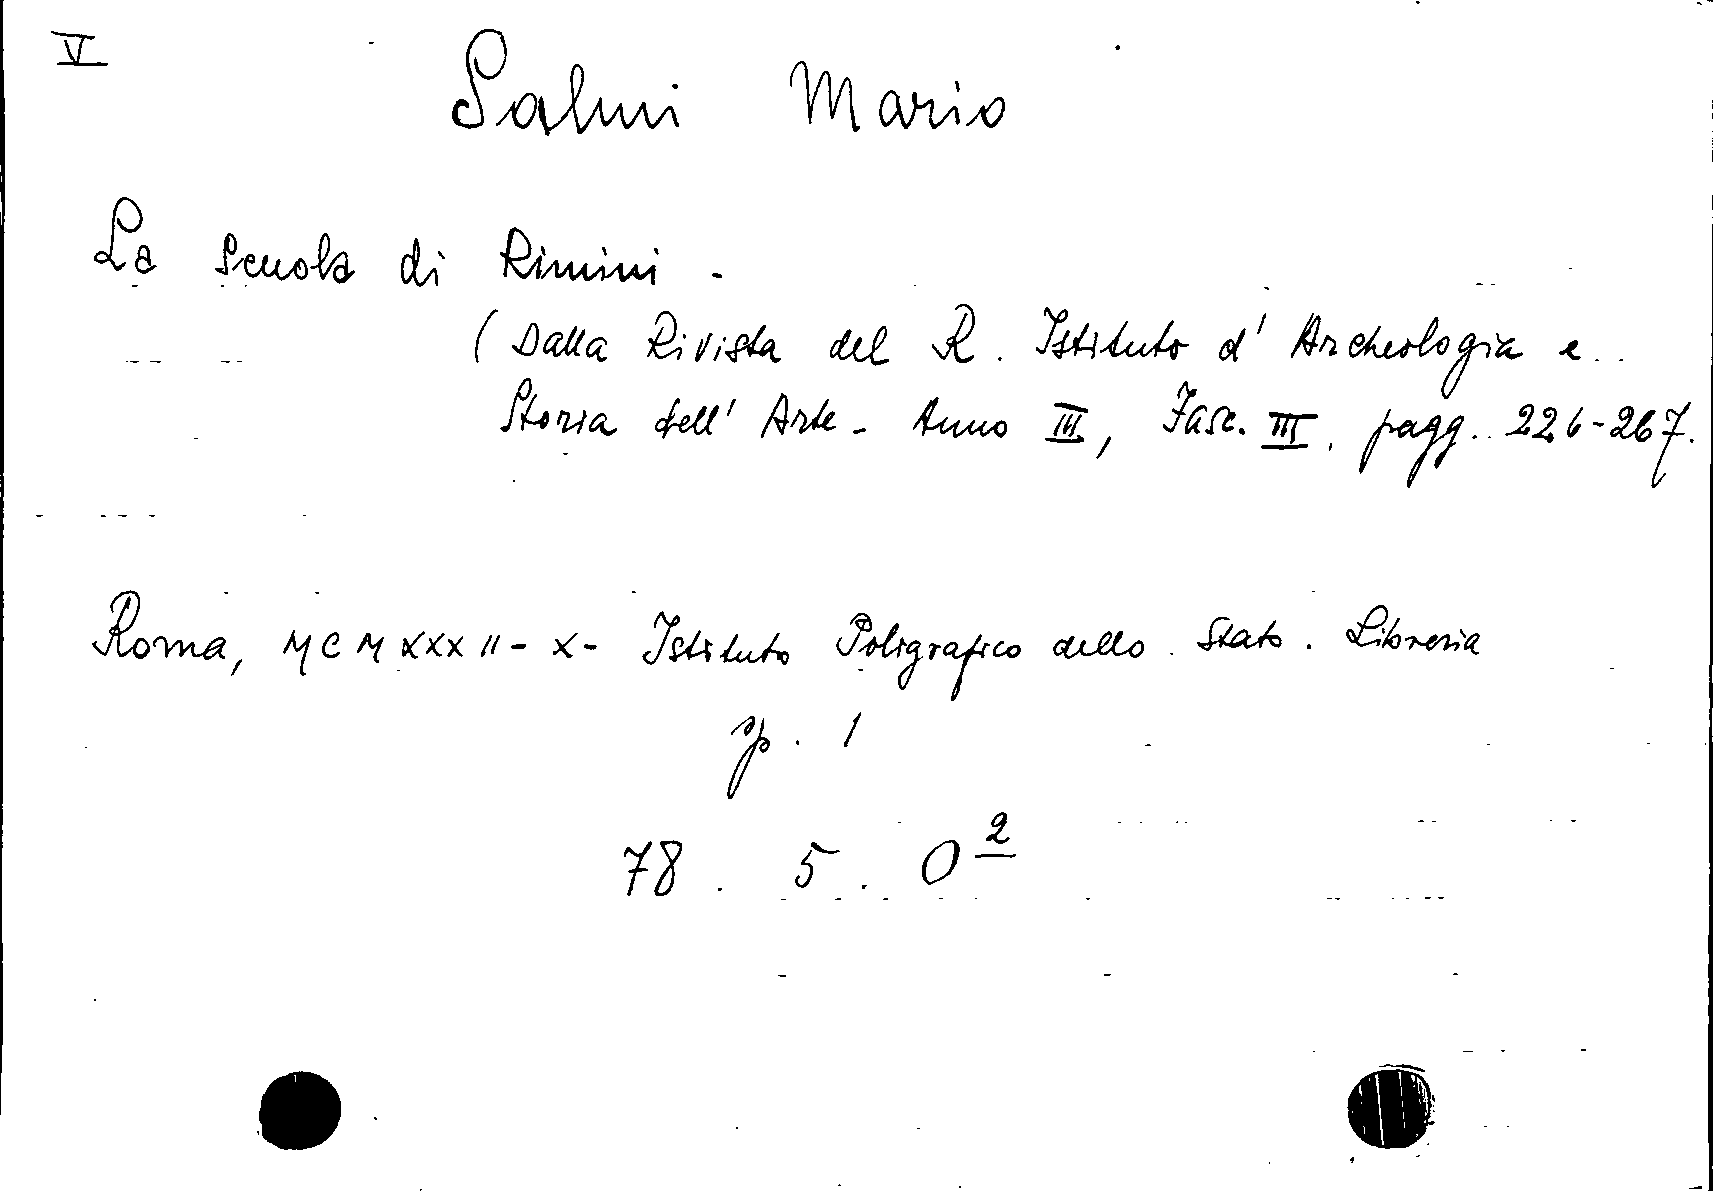 V
Salmi Mario
La Scuola di Rimini -
( Dalla Rivista del R. Istituto d' Archeologia e
Storia dell' Arte - Anno III, Fasc. III. pagg. 226-267.
Roma, MCMXXXII - X - Istituto Poligrafico dello Stato. Libreria
p. 1
78. 5. O 2